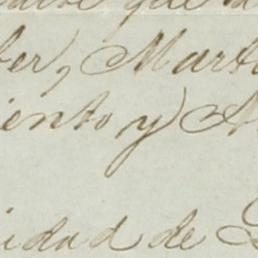 que
ber, Mart
iento y A
idad de